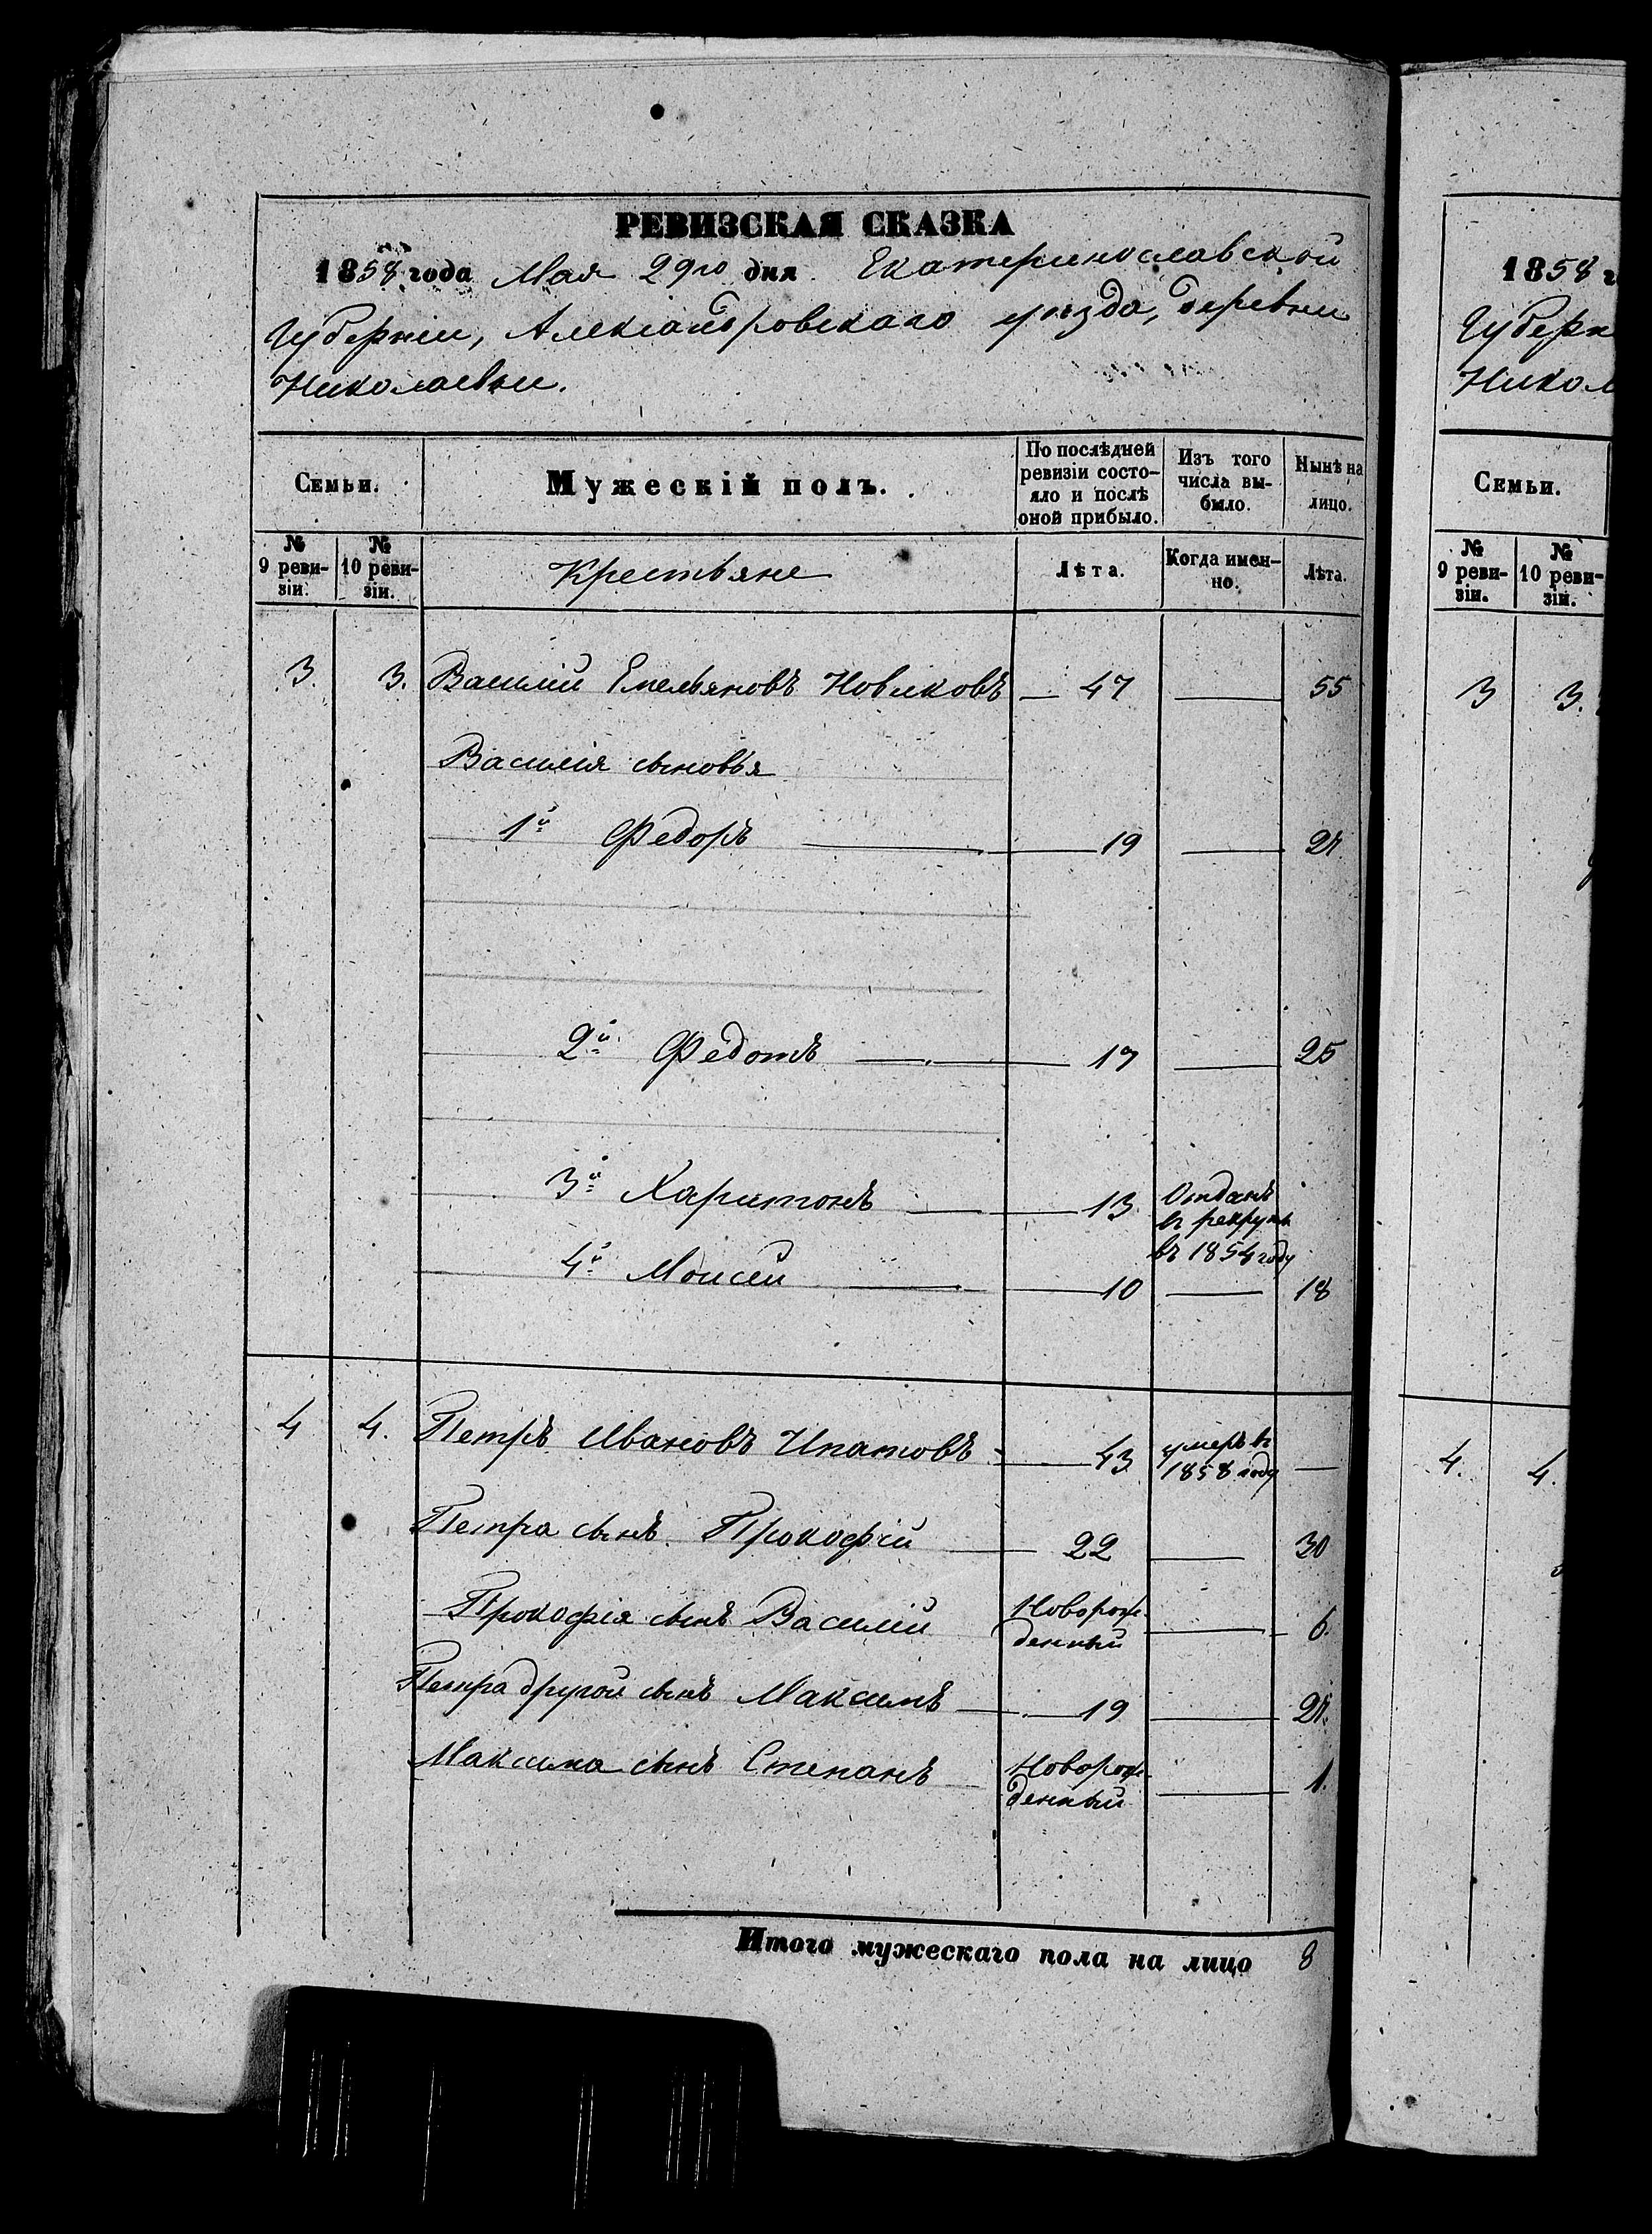 РЕВИЗСКАЯ СКАЗКА
1858 года Мая 29го дня Екатеринославской
Губерніи, Александровскаго уѣзда, деревни
Николаевки.
Семьи.
Мужескій полъ.
По послѣдней
ревизіи состо-
яло и послѣ
оной прибыло.
Изъ того
числа вы-
было.
Нынѣ на
лицо.
№
9 реви-
зіи.
№
10 реви-
зіи.
Крестьяне
Лѣта.
Когда имен-
но.
Лѣта.
3. 3. Василій Емельяновъ Новиковъ 47 55
Василія сыновья
1й Федоръ 19 27.
2й Федотъ 17 25
3й Харитонъ 13 Отданъ
въ рекруты
въ 1854 году
4й Моисей 10 18
4 4. Петръ Ивановъ Ипатовъ 43 умеръ въ
1858 году
Петра сынъ Прокофій 22 30
Прокофія сынъ Василій Новорож-
денный 6.
Петра другой сынъ Максимъ 19 27.
Максима сынъ Степанъ Новорож-
денный 1.
Итого мужескаго пола на лицо 8
1858 г
Губерн
Никол
Семьи.
№
9 реви-
зіи.
№
10 реви-
зіи.
3 3.
4. 4.